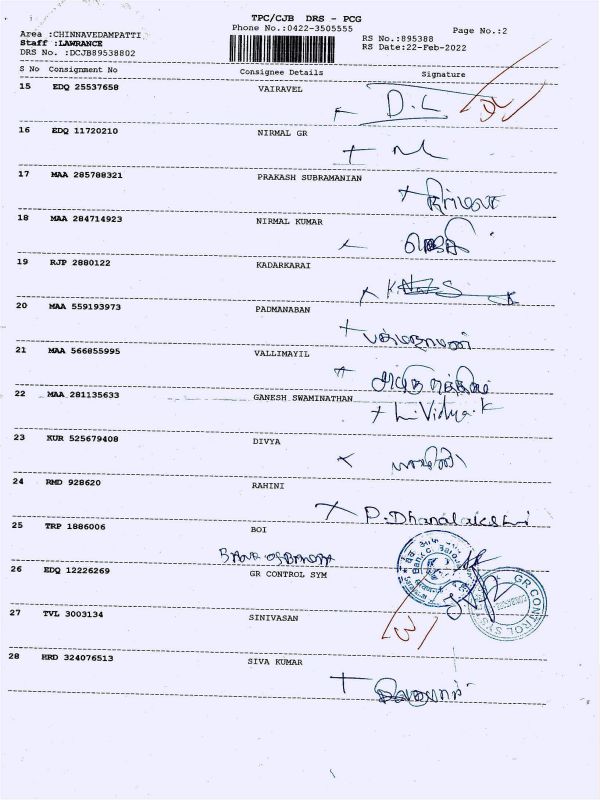 TPC/CJB DRS - PCG
Phone No.:0422-3505555
Page No.:2
Area :CHINNAVEDAMPATTI
Staff :LAWRANCE
DRS No. :DCJB89538802
RS No.:895388
RS Date:22-Feb-2022
S No Consignment No Consignee Details Signature
15 EDQ 25537658 VAIRAVEL
D.L
16 EDQ 11720210 NIRMAL GR
17 MAA 285788321 PRAKASH SUBRAMANIAN
18 MAA 284714923 NIRMAL KUMAR
19 RJP 2880122 KADARKARAI
20 MAA 559193973 PADMANABAN
21 MAA 566855995 VALLIMAYIL
22 MAA 281135633 GANESH SWAMINATHAN
L. Vidya.K
23 KUR 525679408 DIVYA
24 RMD 928620 RAHINI
25 TRP 1886006 BOI
26 EDQ 12226269 GR CONTROL SYM
GR CONTROL SYS
27 TVL 3003134 SINIVASAN
28 HRD 324076513 SIVA KUMAR